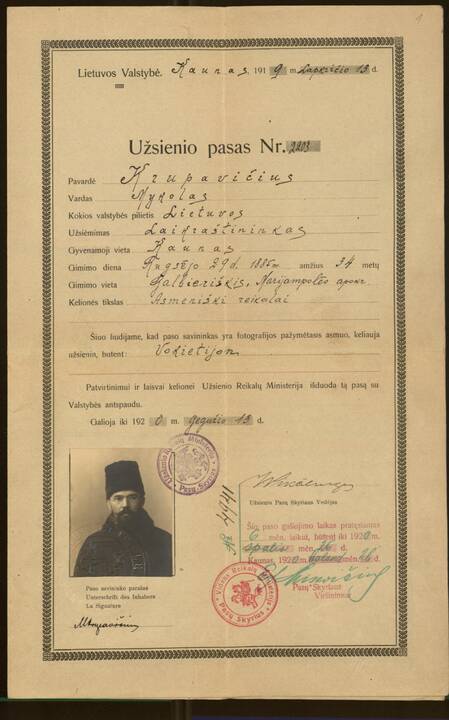 1
Lietuvos Valstybė. Kaunas, 1919 m. Lapkričio 13 d.
Užsienio pasas Nr. 2203
Pavardė Krupavičius
Vardas Mykolas
Kokios valstybės pilietis Lietuvos
Užsiėmimas Laikraštininkas
Gyvenamoji vieta Kaunas
Gimimo diena Rugsėjo 29 d. 1885 m amžius 34 metų
Gimimo vieta Balbieriškis, Marijampolės apskr.
Kelionės tikslas Asmeniški reikalai
Šiuo liudijame, kad paso savininkas yra fotografijos pažymėtasis asmuo, keliauja
užsienin, butent: Vokietijon
Patvirtinimui ir laisvai kelionei Užsienio Reikalų Ministerija išduoda tą pasą su
Valstybės antspaudu.
Galioja iki 1920 m. Gegužio 13 d.
Užsienio Reikalų Ministerija
Pasų Skyrius
Užsienio Pasų Skyriaus Vedėjas
Nr 4941
Šio paso galiojimo laikas pratęsiamas
6 mėn. laikui, butent iki 1920 m.
spalio mėn. 26 d.
Kaunas, 1920 m. mėn. 26 d.
Pasų Skyriaus
Viršininkas
Užsienio Reikalų Ministerija
Pasų Skyrius
Paso savininko parašas
Unterschrift des Inhabers
La Signature
MKrupavičius